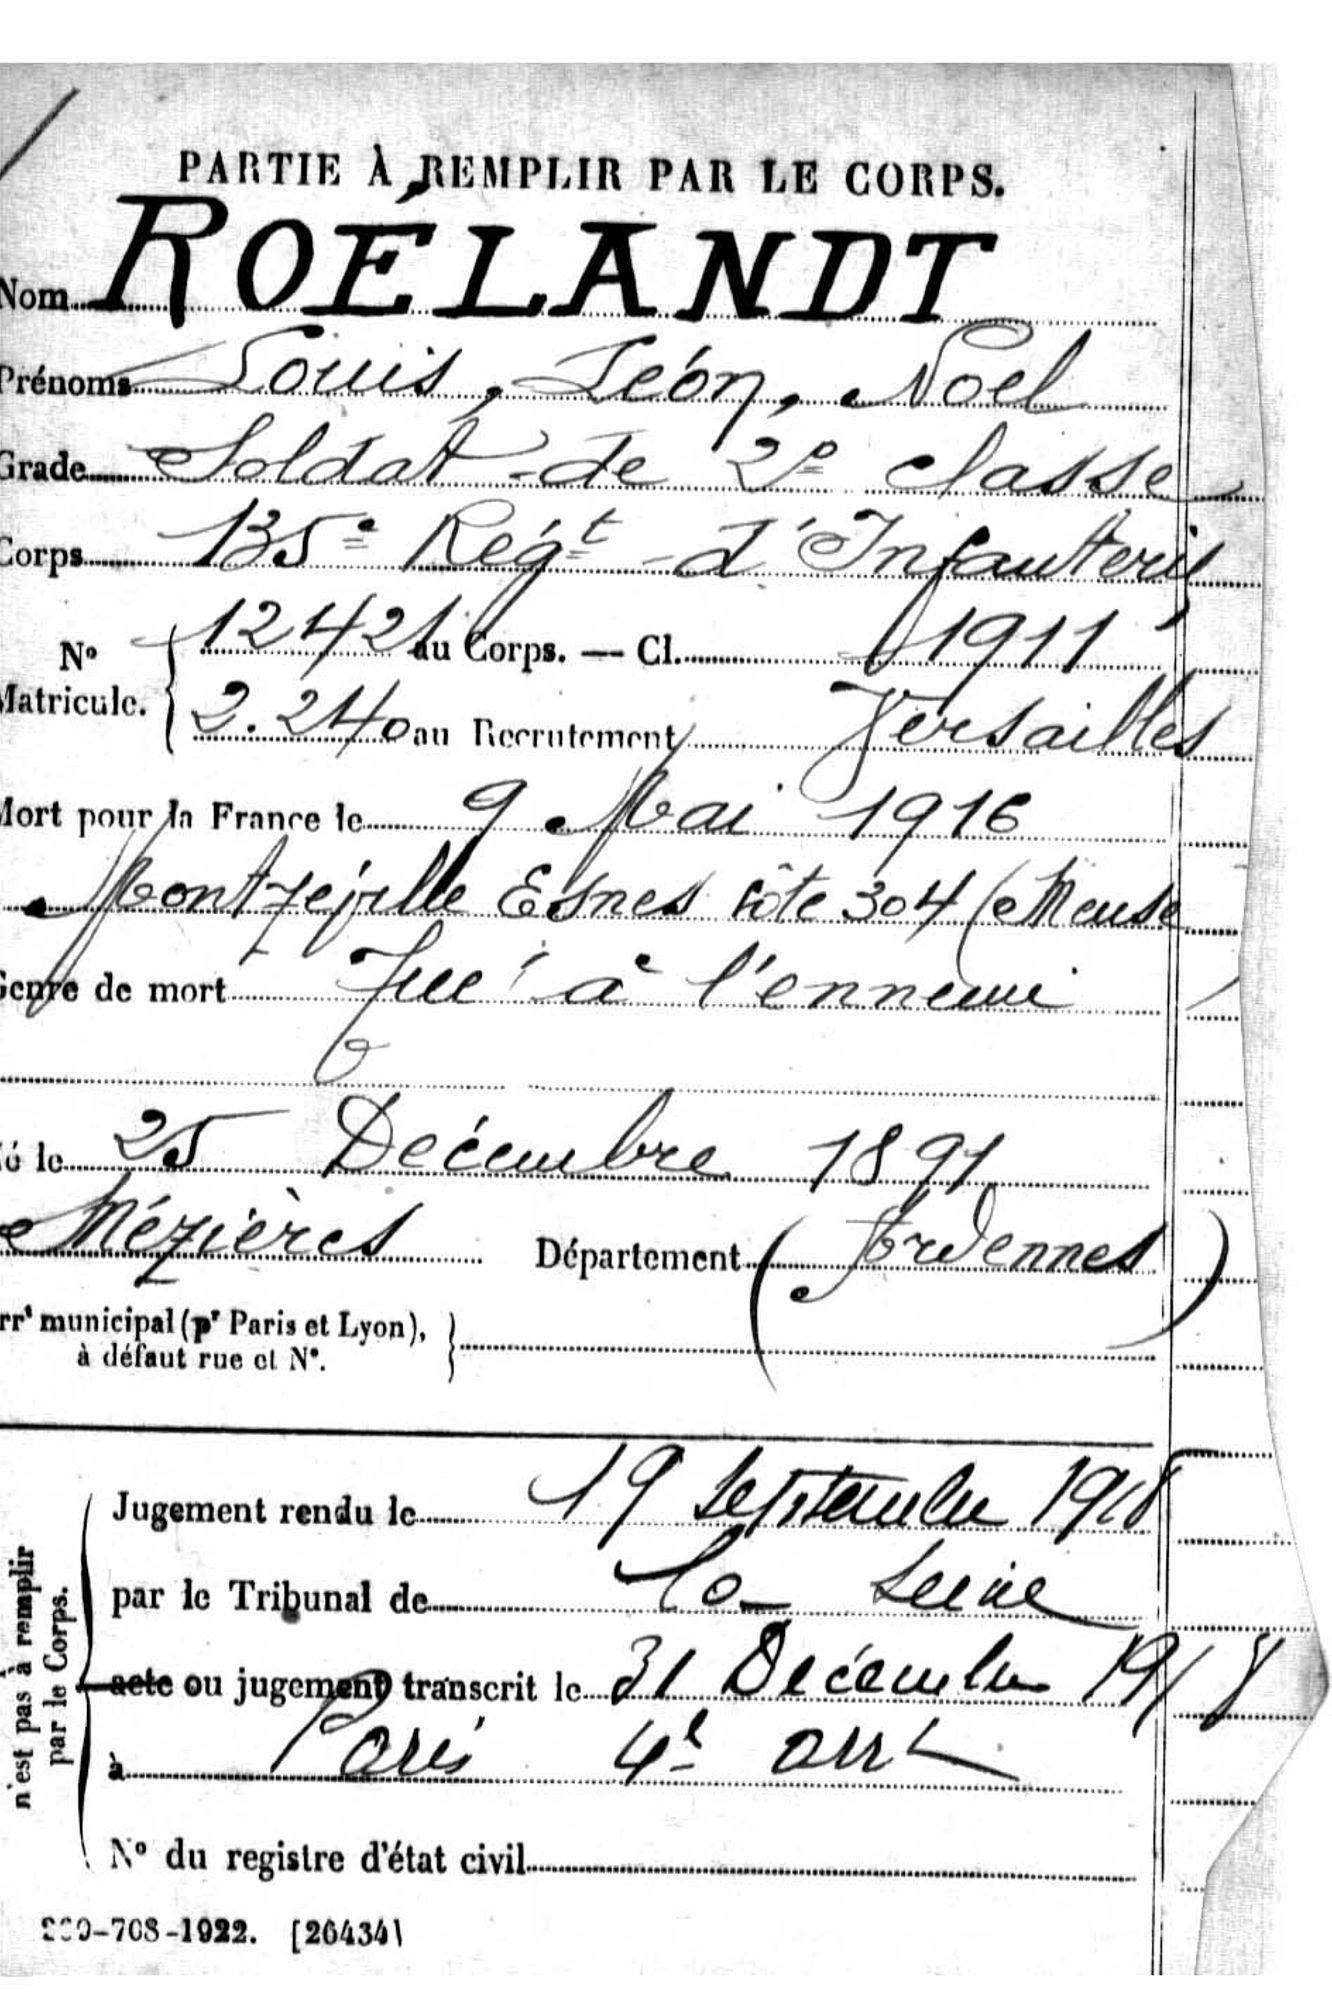 PARTIE À REMPLIR PAR LE CORPS.
Nom ROÉLANDT
Prénoms Louis, Léon, Noel
Grade Soldat de 2e classe
Corps 135e Régt d'Infanterie
No Matricule. { 12421 au Corps. — Cl. 1911
2.240 au Recrutement Versailles
Mort pour la France le 9 Mai 1916
Montzéville Esnes Côte 304 (Meuse
Genre de mort Tué à l'ennemi
Né le 25 Décembre 1891
Mézières Département (Ardennes)
rrt municipal (pr Paris et Lyon),
à défaut rue et No.
n'est pas à remplir
par le Corps.
Jugement rendu le 19 Septembre 1918
par le Tribunal de la Seine
acte ou jugement transcrit le 31 Décembre 1918
à Paris 4e arrt
No du registre d'état civil
-708-1922. [26434]